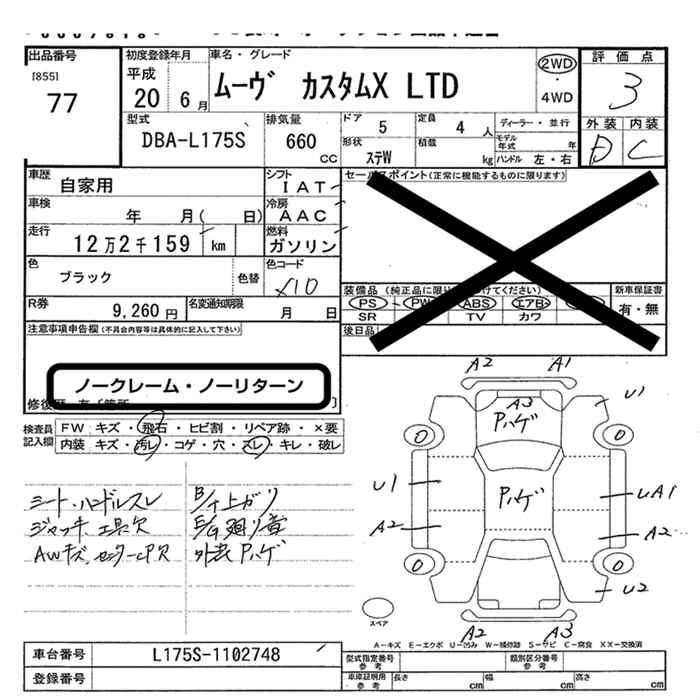 出品番号
[855]
77
初度登録年月
平成
20 6月
車名・グレード
ムーヴ カスタムX LTD
2WD
・
4WD
評価点
3
外装 内装
D C
型式
DBA-L175S
排気量
660
CC
ドア 5
定員 4 人
ディーラー・並行
形状 ステW
積載 kg
モデル年式 年
ハンドル 左・右
車歴
自家用
シフト
IAT
セールスポイント(正常に機能するものに限ります)
車検
年 月( 日)
冷房
AAC
走行
12万2千159 km
燃料
ガソリン
色
ブラック
色替
色コード
X10
装備品(純正品に限り○を付けてください)
新車保証書
PS PW ABS エアB
有・無
SR TV カワ
R券
9,260円
名変通知期限
月 日
後日品
注意事項申告欄(不具合内容等は具体的に記入して下さい)
ノークレーム・ノーリターン
修復歴
検査員
記入欄
FW キズ・飛石・ヒビ割・リペア跡・×要
内装 キズ・汚レ・コゲ・穴・スレ・キレ・破レ
シート・ハンドルスレ
ジャッキ、工具欠
AWキズ、センターCP欠
B/T上ガリ
E/G廻り音
外装Pハゲ
A2 A1
U1
A3
Pハゲ
0 0
U1
Pハゲ
UA1
A2
A2
0 0
U2
スペア
A2 A3
A-キズ E-エクボ U-凹み W-補修跡 S-サビ C-腐食 XX-交換済
車台番号
L175S-1102748
登録番号
型式指定番号
参考
類別区分番号
参考
車庫証明用
参考
長さ cm
幅 cm
高さ cm